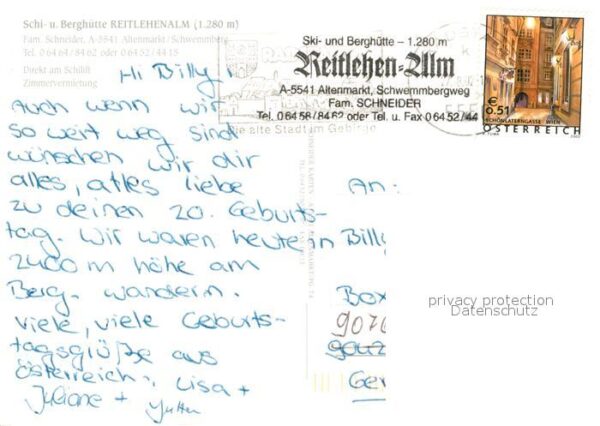 Schi- u. Berghütte REITLEHENALM (1.280 m)
Fam. Schneider, A-5541 Altenmarkt/Schwemmberg
Tel. 0 64 64/84 62 oder 0 64 52/44 15
Direkt am Schilift
Zimmervermietung
Ski- und Berghütte – 1.280 m
Reitlehen-Alm
A-5541 Altenmarkt, Schwemmbergweg
Fam. SCHNEIDER
Tel. 0 64 58/84 62 oder Tel. u. Fax 0 64 52/44
Die alte Stadt im Gebirge
€ 0,51
SCHÖNLATERNGASSE, WIEN
ÖSTERREICH
Hi Billy!
Auch wenn wir
so weit weg sind
wünschen wir dir
alles, alles liebe
zu deinen 20. Geburts-
tag. Wir waren heute in
2400 m höhe am
Berg. wandern.
Viele, viele Geburts-
tagsgrüße aus
Österreich. Lisa +
Juliane + Jutta
An:
Billy
Box
9076
Ger
privacy protection
Datenschutz